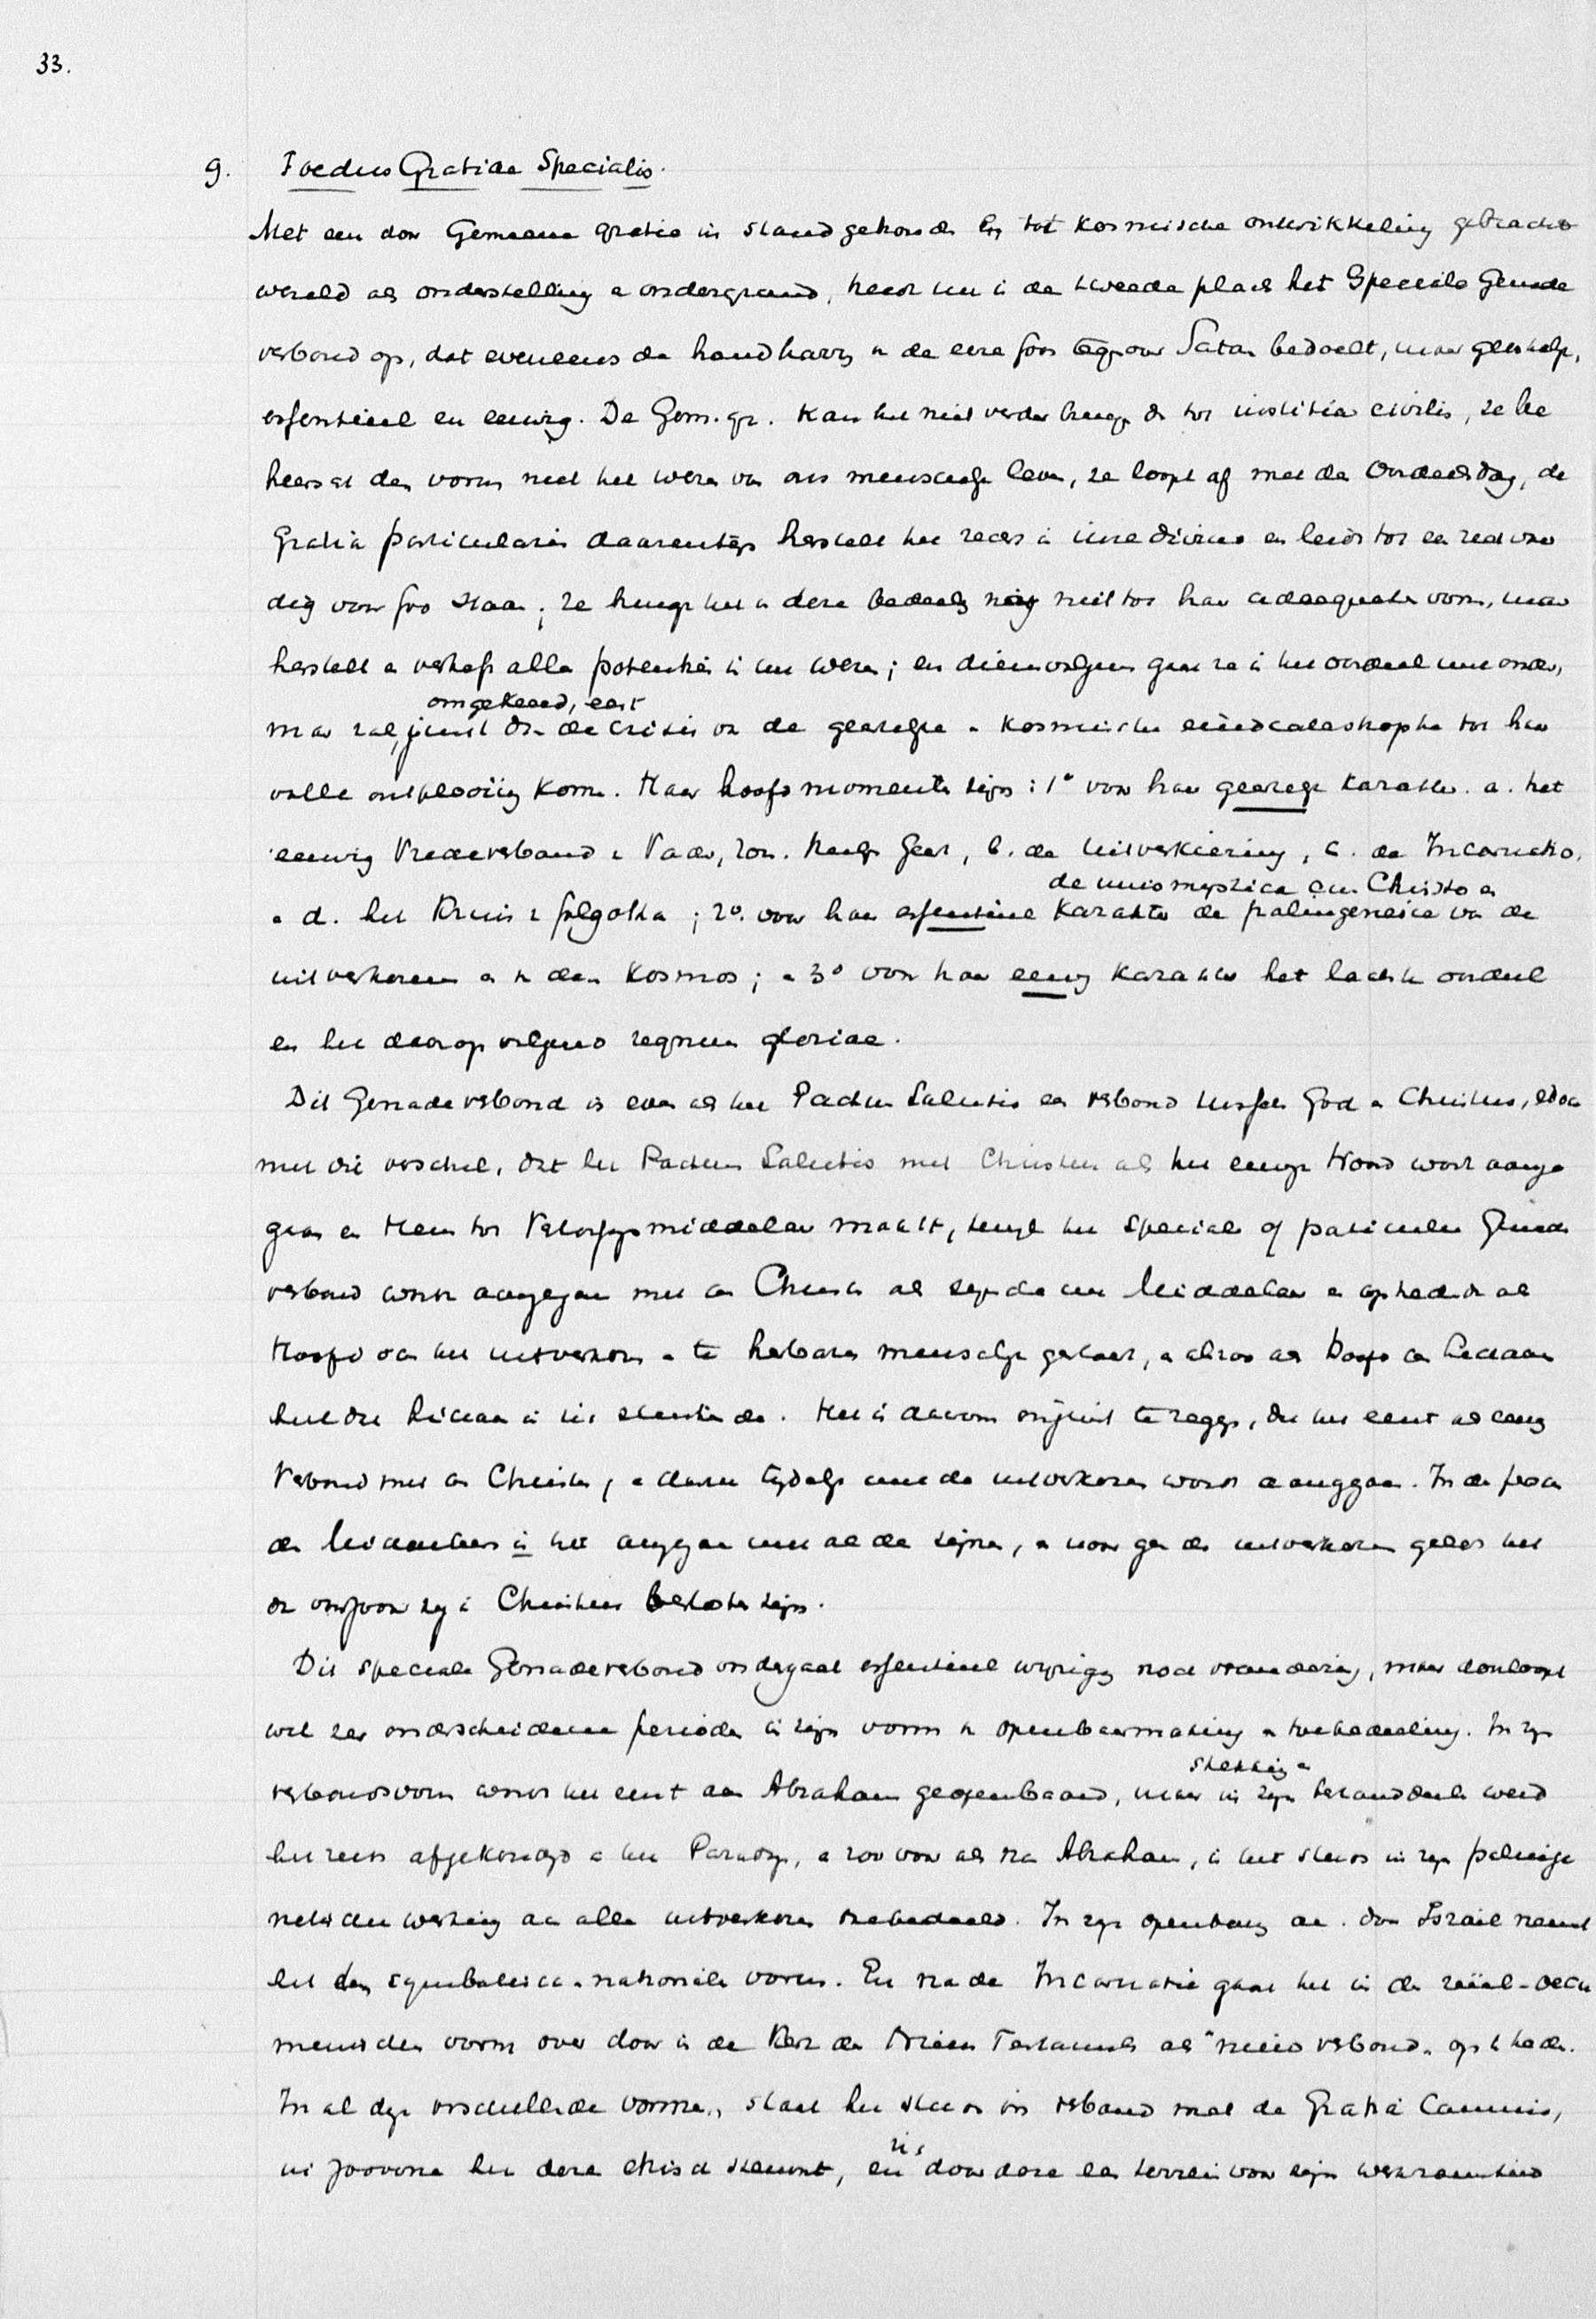 33.
9. Foedus Gratiae Specialis.
Met een door Gemeene gratie in stand gehouden en tot kosmische ontwikkeling gebrachte
wereld als onderstelling en ondergrond, treedt nu in de tweede plaats het Speciale Genade
verbond op, dat eveneens de handhaving van de eere Gods tegenover Satan bedoelt, maar geestelijk,
essentieel en eeuwig. De Gem. gr. kan het niet verder brengen dan tot iustitia civilis, ze be
heerscht den vorm niet het wezen van ons menschelijk leven, ze loopt af met de Oordeelsdag, de
Gratia particularis daarentegen herstelt het recht in iure divino en leidt tot een
voor God staan; ze brengt het in deze bedeeling nog niet tot haar adaequaten vorm, maar
herstelt en verheft alle potentiën in het wezen; en dienvolgens gaat ze in het oordeel niet onder,
maar zal, omgekeerd, eerst juist door de crisis van de geestelijke en kosmische eindcatastrophe tot haar
volle ontplooiing komen. Haar hoofdmomenten zijn: 1° voor haar geestelijk karakter. a. het
eeuwig Vredeverbond in Vader, Zoon, Heilige Geest, b. de Uitverkiezing, c. de Incarnatio,
en d. het Kruis van Golgotha; 2°. voor haar essentieel karakter de unio mystica cum Christo en de palingenesie van de
uitverkorenen en van den Kosmos; en 3° voor haar eeuwig karakter het laatste oordeel
en het daarop volgend regnum gloriae.
Dit Genadeverbond is even als het Pactum Salutis een verbond tusschen God en Christus, edoch
met dit verschil, dat het Pactum Salutis met Christus als het eeuwige Woord wordt aange
gaan en Hem tot Verlossingsmiddelaar maakt, terwijl het Speciale of particuliere Genade
verbond wordt aangegaan met den Christus als zijnde een Middelaar en optredende als
Hoofd van het uitverkoren en te herbaren menschelijk geslacht,
Het is daarom onjuist te zeggen, dat het eerst als eeuwig
Verbond met den Christus, en daarna tijdelijk met de uitverkorenen wordt aangegaan. In de persoon
des Middelaars is het aangegaan met al de zijnen, en voor de uitverkorenen geldt het
voor zoover zij in Christus besloten zijn.
Dit speciale Genadeverbond ondergaat essentieel wijziging noch verandering, maar doorloopt
wel zes onderscheidene perioden in zijn vorm van openbaarmaking en toebedeeling. In zijn
verbondsvorm wordt het eerst aan Abraham geopenbaard, maar in zijn strekking en bestanddeelen werd
het reeds afgekondigd in het Paradijs, en zoo voor als na Abraham, is het steeds in zijn palinge
netische werking aan alle uitverkorenen toebedeeld. In zijn openbaring aan en door Israel neemt
het den symbolisch-nationale vorm. En na de Incarnatie gaat het in de reëel-oecu
menischen vorm over door in de Kerk des Nieuwen Testaments als "nieuw verbond" op te treden.
In al deze verschillende vormen, staat het steeds in verband met de Gratia Communis,
in zooverre het deze steunt, en zich door deze een terrein voor zijn werkzaamheid